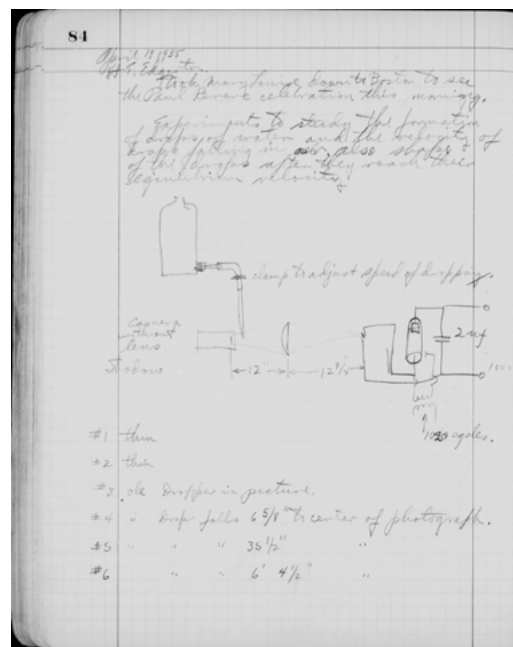 84
April 19 1935
H.E. Edgerton.
Took Mary Louise down to Boston to see
the Paul Revere celebration this morning.
Experiments to study the formation
of drops of water and the velocity of
drops falling in air, also shape
of the drops after they reach their
equilibrium velocity.
clamp to adjust speed of dropping.
Camera
without
lens.
12"
2 uf
1020 cycles.
#1 thin
#2 thin
#3 ok Dropper in picture.
#4 " Drop falls 6 5/8" to center of photograph.
#5 " " " 35 1/2" "
#6 " " 6' 4 1/2" "